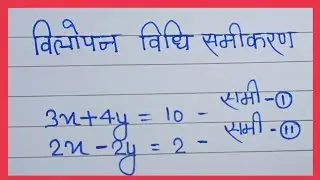 विलोपन विधि समीकरण
3x+4y = 10 - समी-①
2x-2y = 2 - समी-⑪